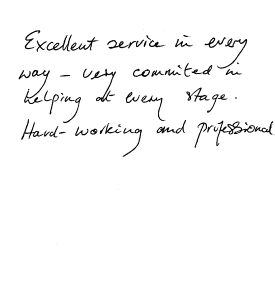 Excellent service in every
way - very commited in
helping at every stage.
Hard-working and professional